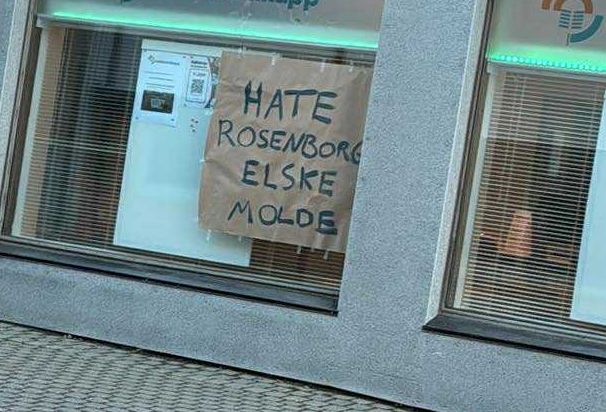 HATE
ROSENBORG
ELSKE
MOLDE